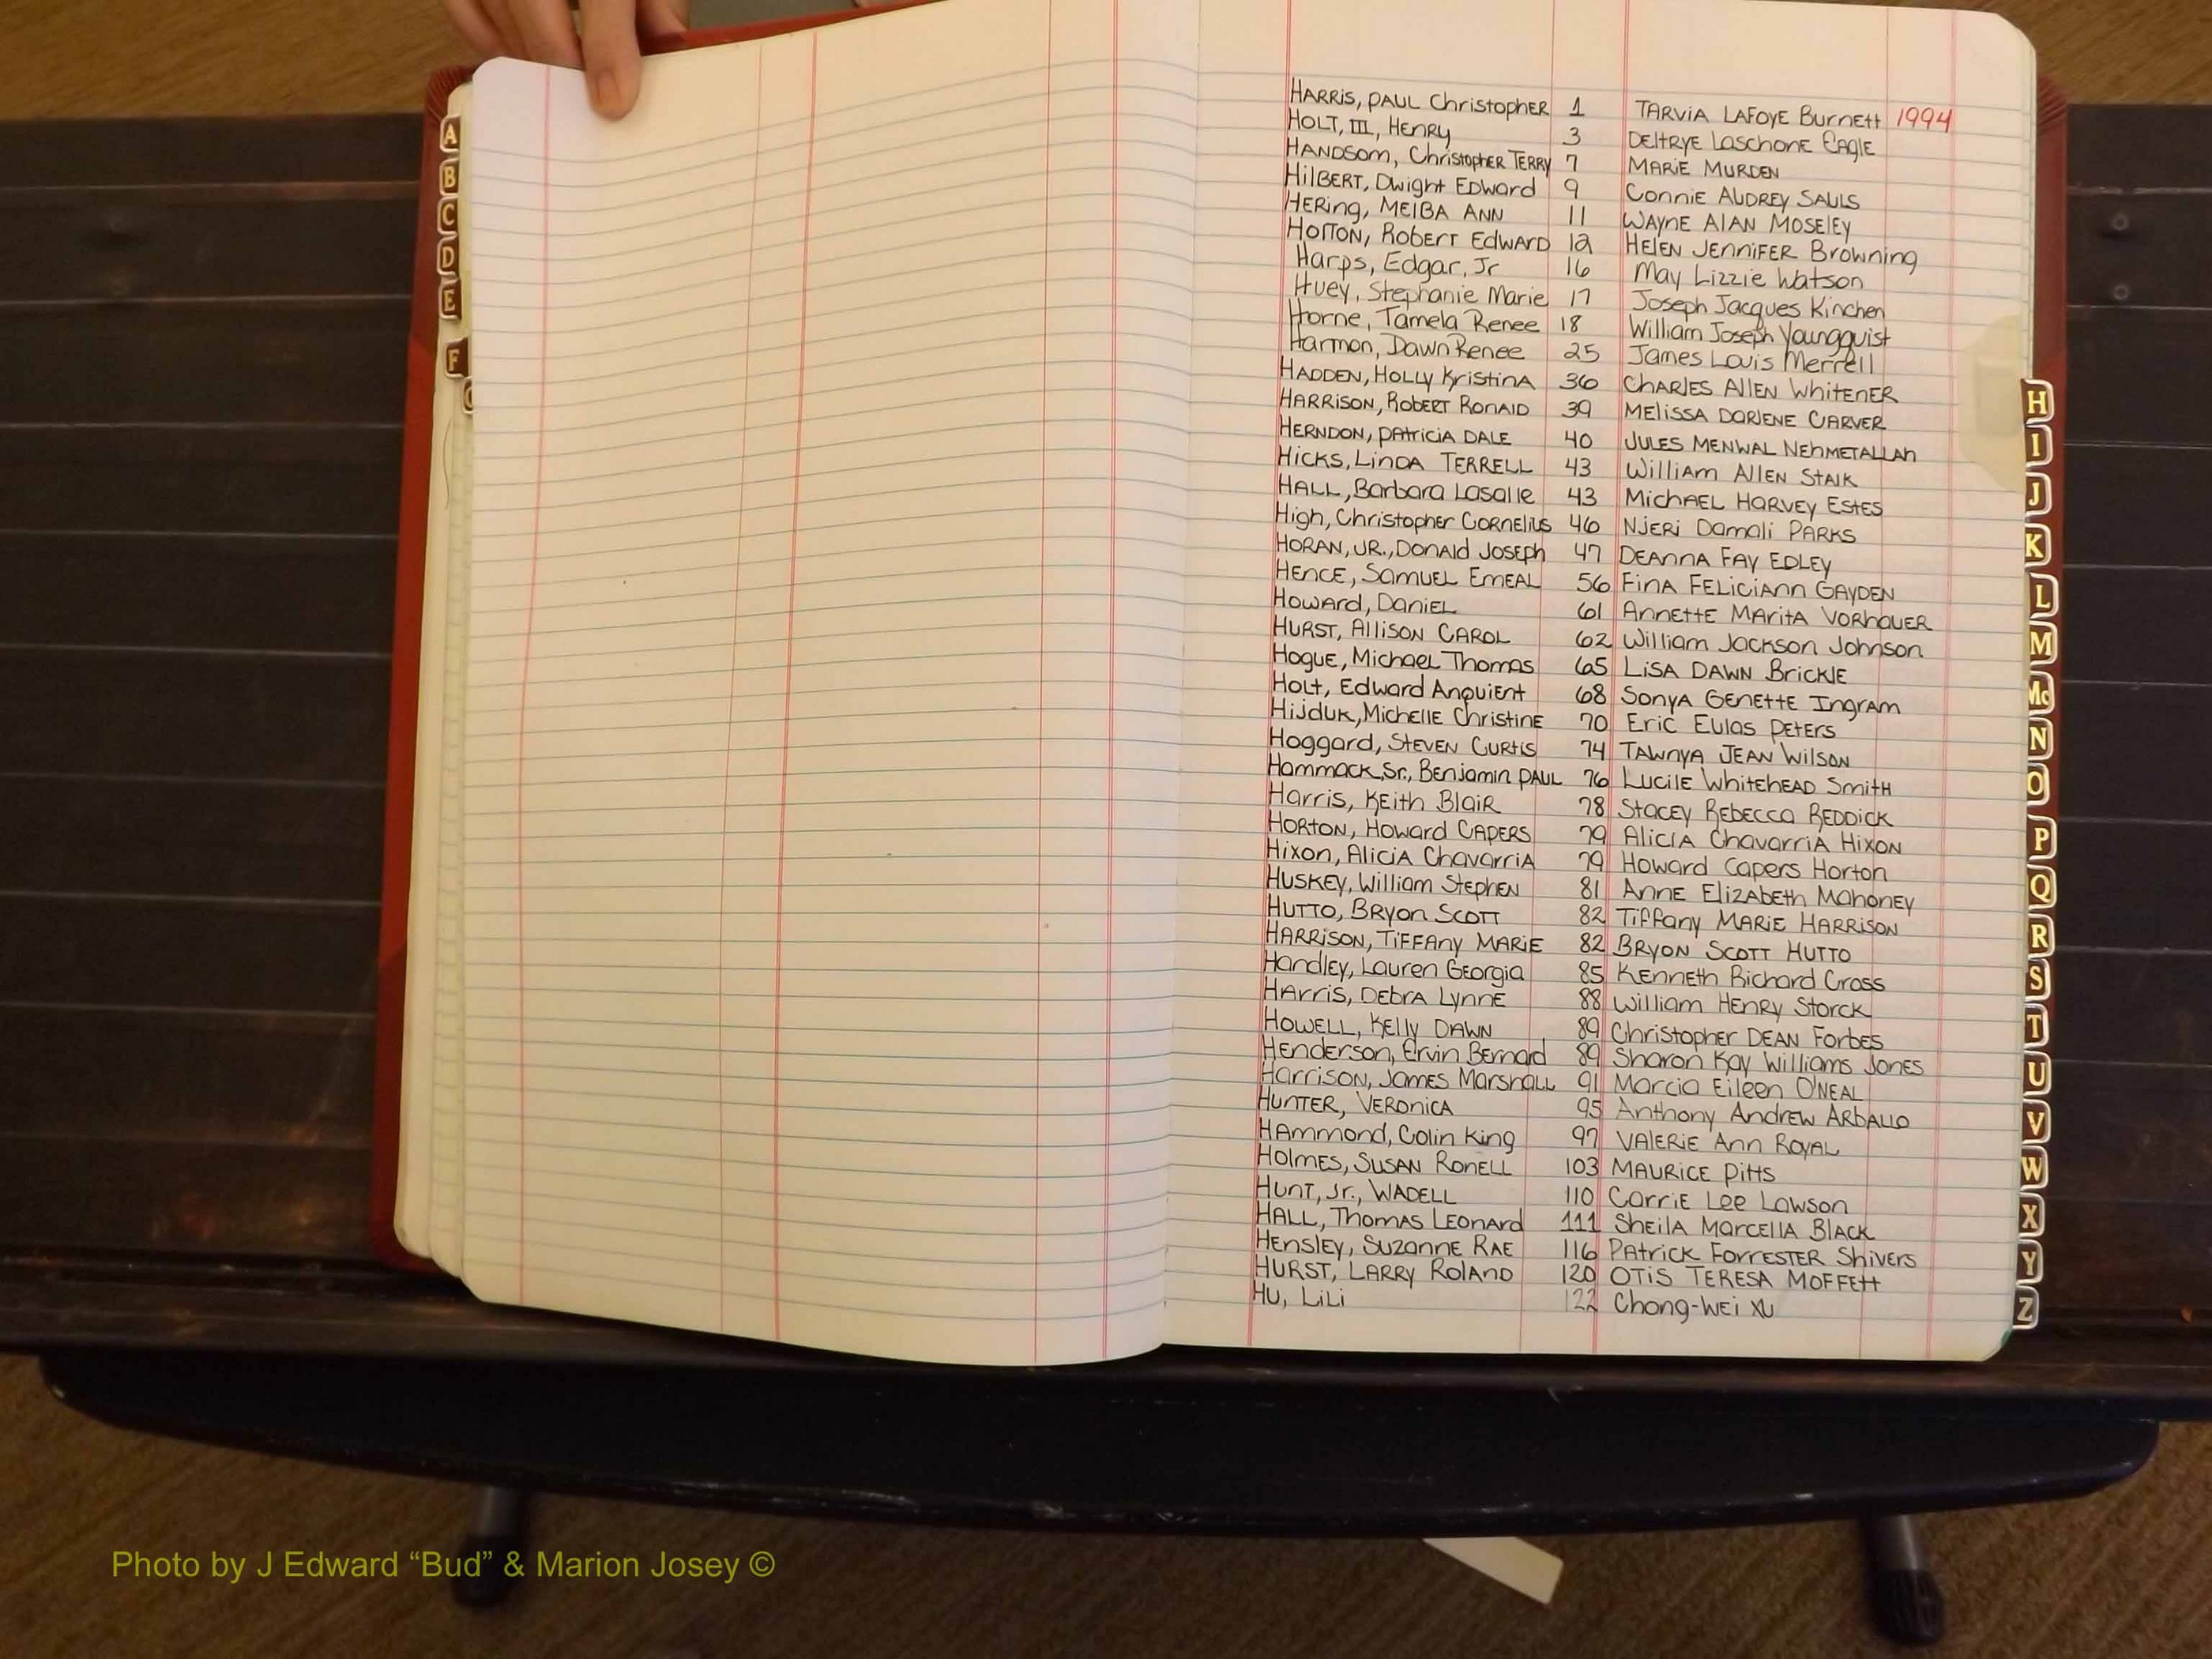 HARRIS, PAUL Christopher 1 TARVIA LAFOYE Burnett 1994
HOLT, III, Henry 3 DELTRYE LaSchone Eagle
HANDSOM, Christopher TERRY 7 MARIE MURDEN
HILBERT, Dwight Edward 9 Connie AUDREY SAULS
HERing, MElBA ANN 11 WAYNE AlAN MOSElEY
HORTON, Robert Edward 12 HELEN JENNIFER Browning
Harps, Edgar, Jr 16 May Lizzie Watson
Huey, Stephanie Marie 17 Joseph Jacques Kinchen
Horne, Tamela Renee 18 William Joseph Youngquist
Harmon, Dawn Renee 25 James Louis Merrell
HADDEN, HOLLY Kristina 36 CHARlES AllEN WhitENER
HARRISON, RObERT RONAlD 39 MElISSA DARlENE CARVER
HERNDON, PAtriciA DALE 40 JULES MENWAL NEhMETALLAh
HICKS, LINDA TERRELL 43 William AllEN StAlK
HALL, Barbara Lasalle 43 MichAEL HARVEY EStES
High, Christopher CORNElius 46 NJERI Damali PARKS
HORAN, JR., DONAld JosEph 47 DEANNA FAY EDLEY
HENCE, SAMUEL EMEAL 56 FINA FELICIANN GAYDEN
HOWARD, DANIEL 61 ANNETTE MARITA VORHAUER
HURST, AllISON CAROL 62 William Jackson Johnson
HOGUE, Michael Thomas 65 LISA DAWN BrickIE
Holt, Edward Anquient 68 SONYA GENETTE Ingram
Hijduk, MichEllE ChristinE 70 Eric Eulas PETERS
Hoggard, STEVEN CURTIS 74 TAWNYA JEAN WilSON
Hammack, Sr., Benjamin PAUL 76 LUCILE WhitEHEAD Smith
Harris, KEith BlaiR 78 STACEY REBECCA REDDICK
HORTON, Howard CAPERS 79 AliciA ChavarriA HIXON
Hixon, AliciA ChavarriA 79 Howard Capers Horton
HUSKEY, William StephEN 81 ANNE ElizAbeth Mahoney
HUTTO, BRYON SCOTT 82 Tiffany MARIE HARRISON
HARRISON, TIFFANY MARIE 82 BRYON SCOTT HUTTO
Handley, Lauren Georgia 85 Kenneth Richard Cross
HARRIS, DEbRA LYNNE 88 William HENRY Storck
HOWELL, KEllY DAWN 89 Christopher DEAN ForbES
Henderson, Ervin Bernard 89 Sharon Kay Williams Jones
Harrison, James Marshall 91 Marcia Eileen O'NEAL
HUNTER, VERONICA 95 Anthony Andrew ARbAllO
HAmmond, Colin King 97 VAlERIE Ann ROYAL
HOlmES, SUSAN RONELL 103 MAURICE PittS
HUNT, Jr., WADELL 110 CarriE LEE LAWSON
HALL, ThomAS LEONARD 111 SHEILA MARCELLA BLACK
HENSLEY, SUZANNE RAE 116 PAtrick FORRESTER Shivers
HURST, LARRY ROlAND 120 OTIS TERESA MOFFEtt
HU, LiLi 122 Chong-WEI XU
A
B
C
D
E
F
H
I
J
K
L
M
Mc
N
O
P
Q
R
S
T
U
V
W
X
Y
Z
Photo by J Edward “Bud” & Marion Josey ©